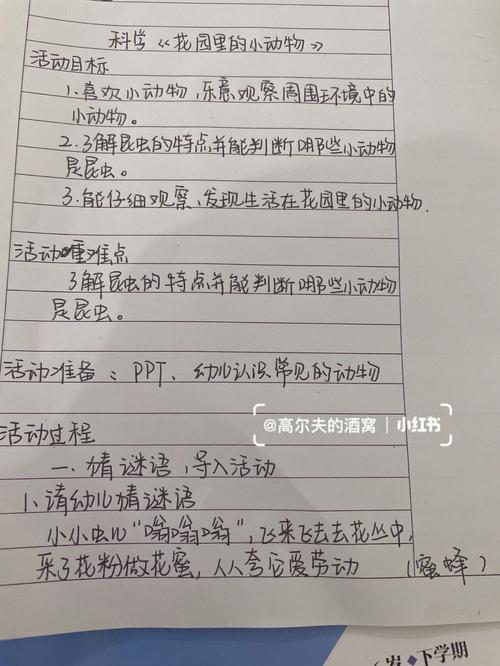 科学《花园里的小动物》
活动目标
1.喜欢小动物,乐意观察周围环境中的
小动物。
2.了解昆虫的特点并能判断哪些小动物
是昆虫。
3.能仔细观察、发现生活在花园里的小动物.
活动重难点
了解昆虫的特点并能判断哪些小动物
是昆虫。
活动准备:PPT、幼儿认识常见的动物
@高尔夫的酒窝 小红书
活动过程
一、猜谜语,导入活动
1、请幼儿猜谜语
小小虫儿"嗡嗡嗡",飞来飞去去花丛中,
采了花粉做花蜜,人人夸它爱劳动 (蜜蜂)
岁·下学期